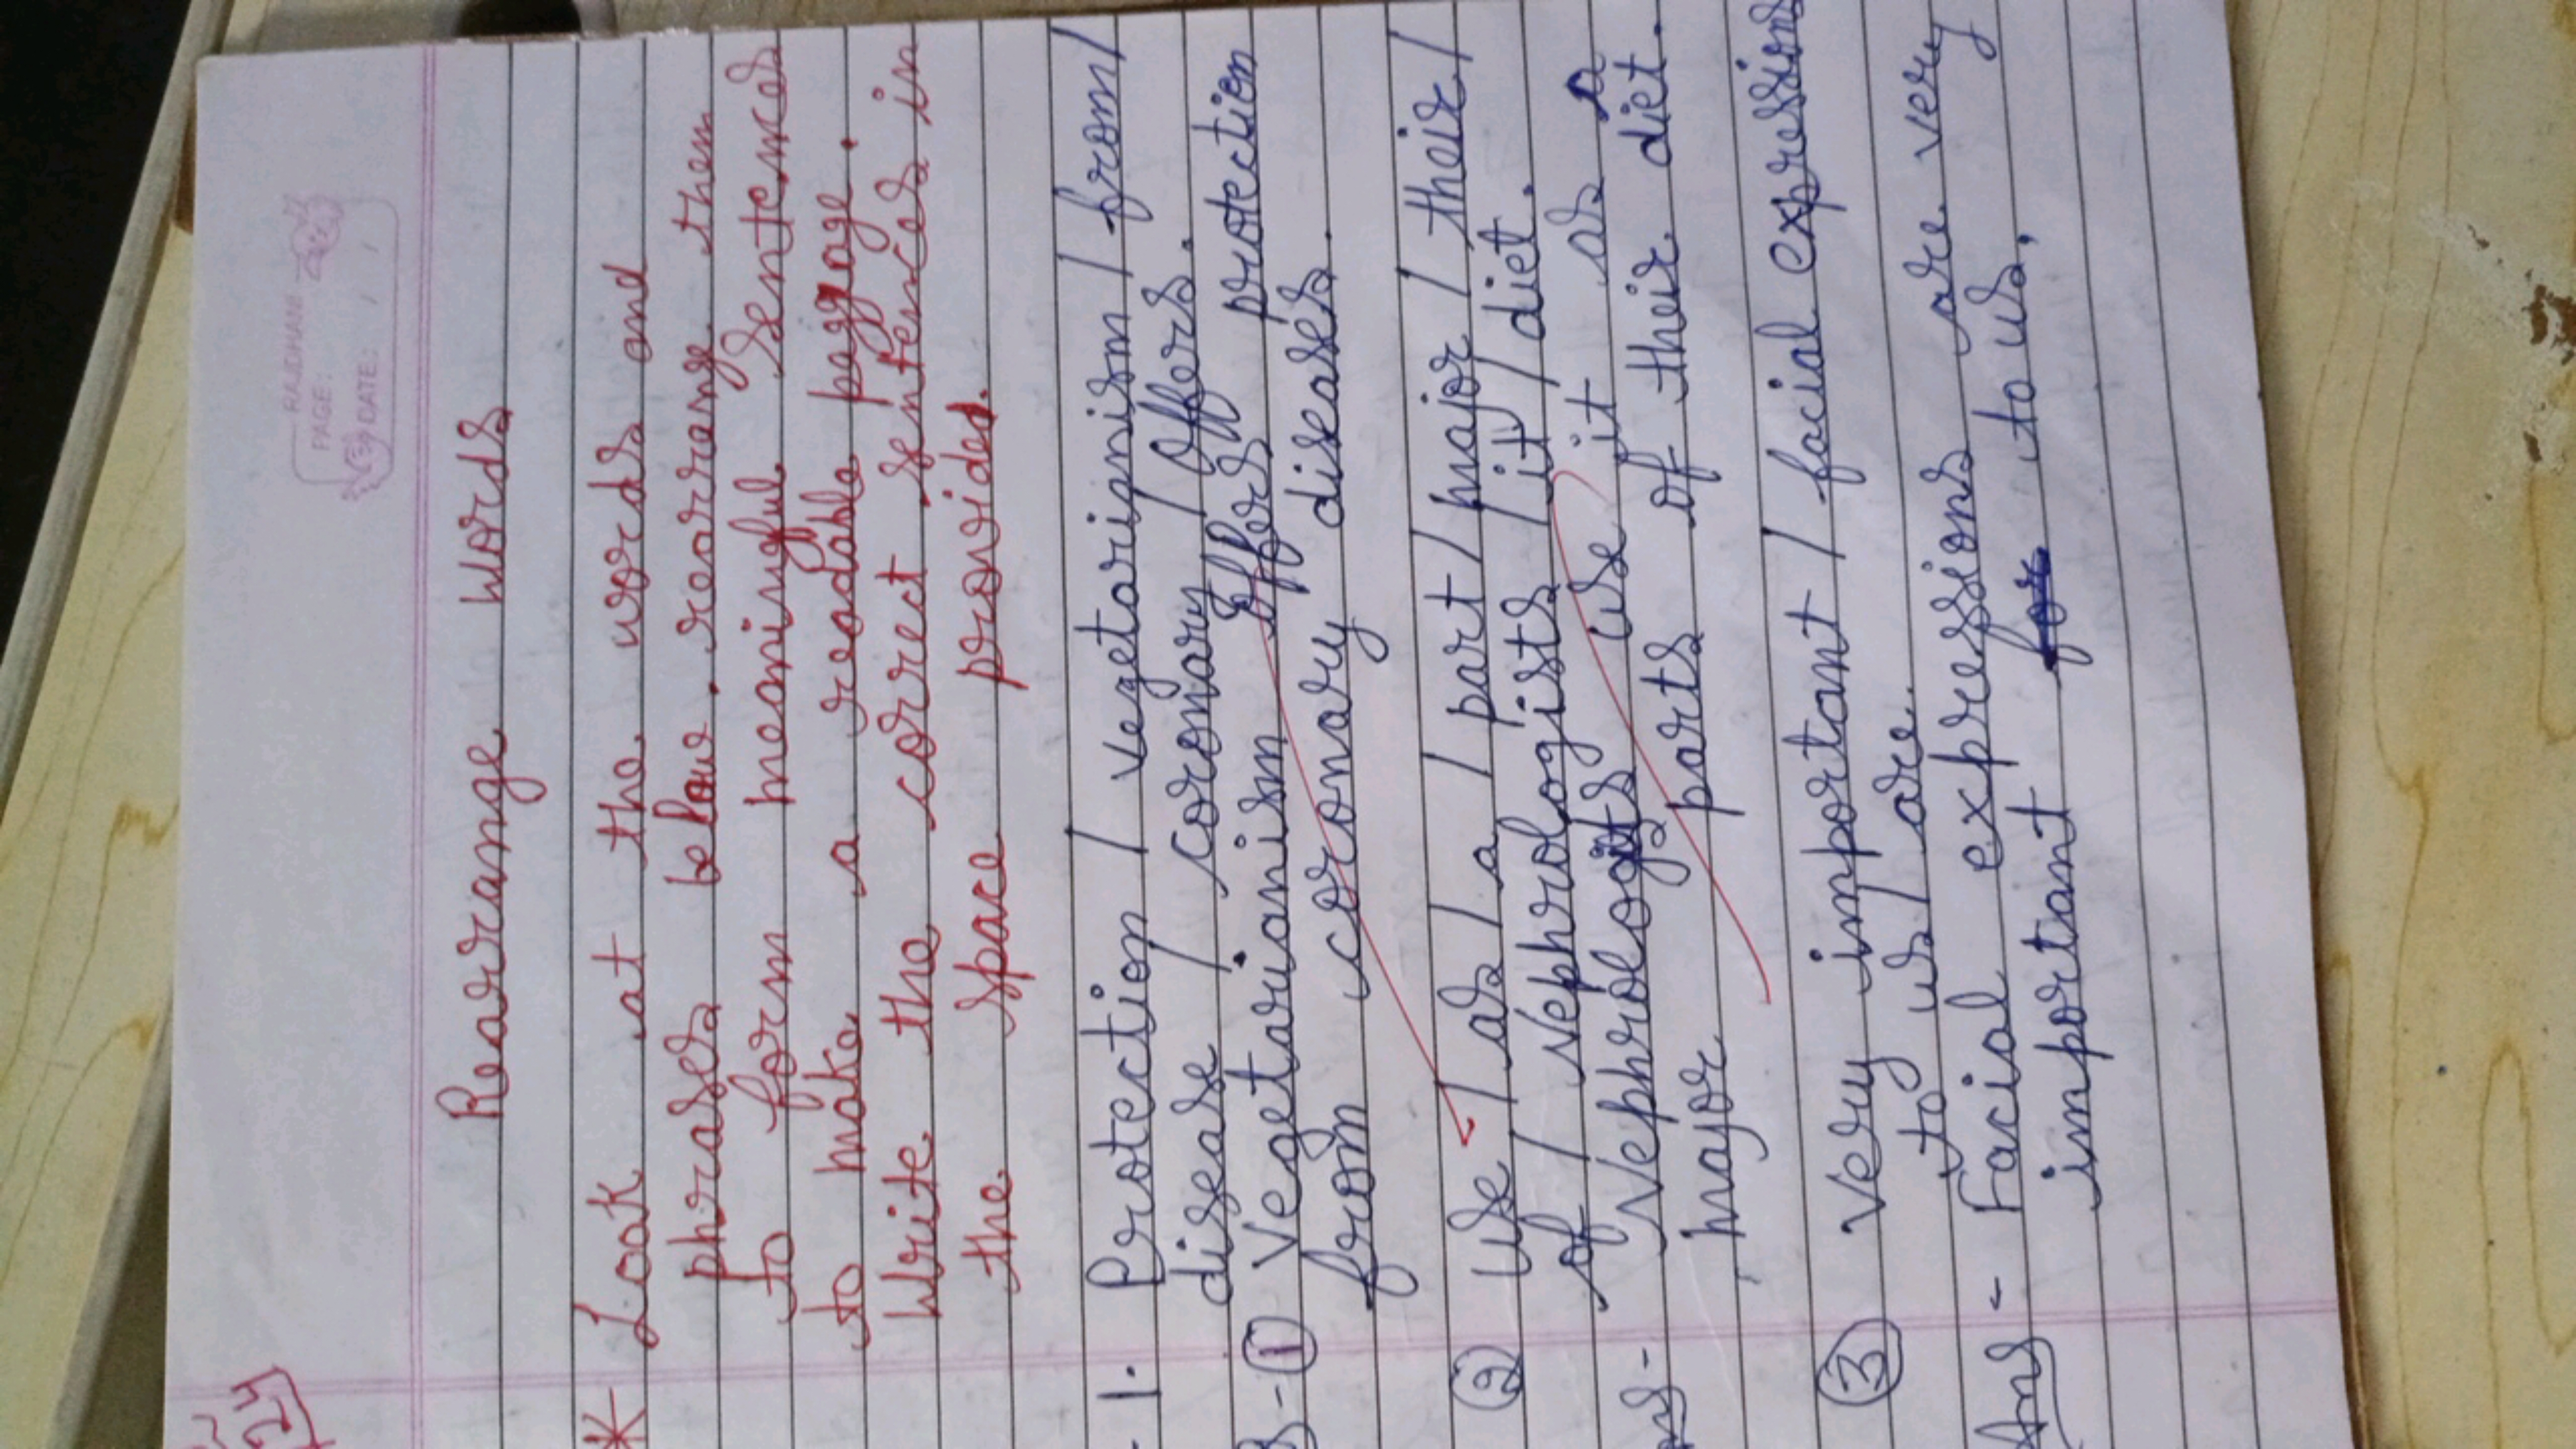 RAJDHANI
PAGE:
DATE: / /
24
Rearrange Words
* Look at the words and
phrases below. rearrange them
to form meaningful sentences
to make a readable
Write the correct sentences in
the space provided.
1. Protection / vegetarianism / from /
disease / coronary / Offers.
① Vegetarianism Offers protection
from coronary diseases.
② Use / as / a / part / major / their /
of / Nephrologists / it / diet.
Nephrologits use it as a
major parts of their diet.
③ Very important / facial expressions
to us / are.
Ans - Facial expressions are very
important for to us.